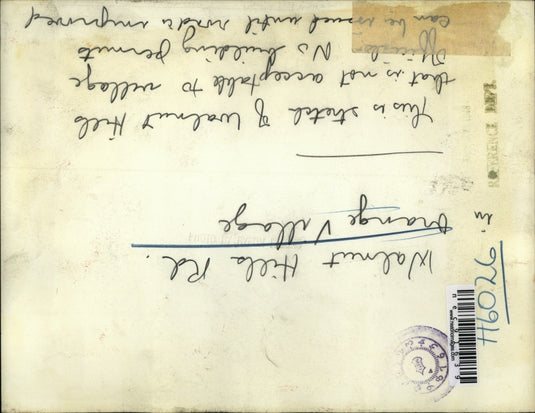 Walnut Hills Rd.
in
Orange Village
This is stretch of Walnut Hills
that is not acceptable to village
officials. No building permits
can be issued until road is improved
REFERENCE DEPT.
H6026